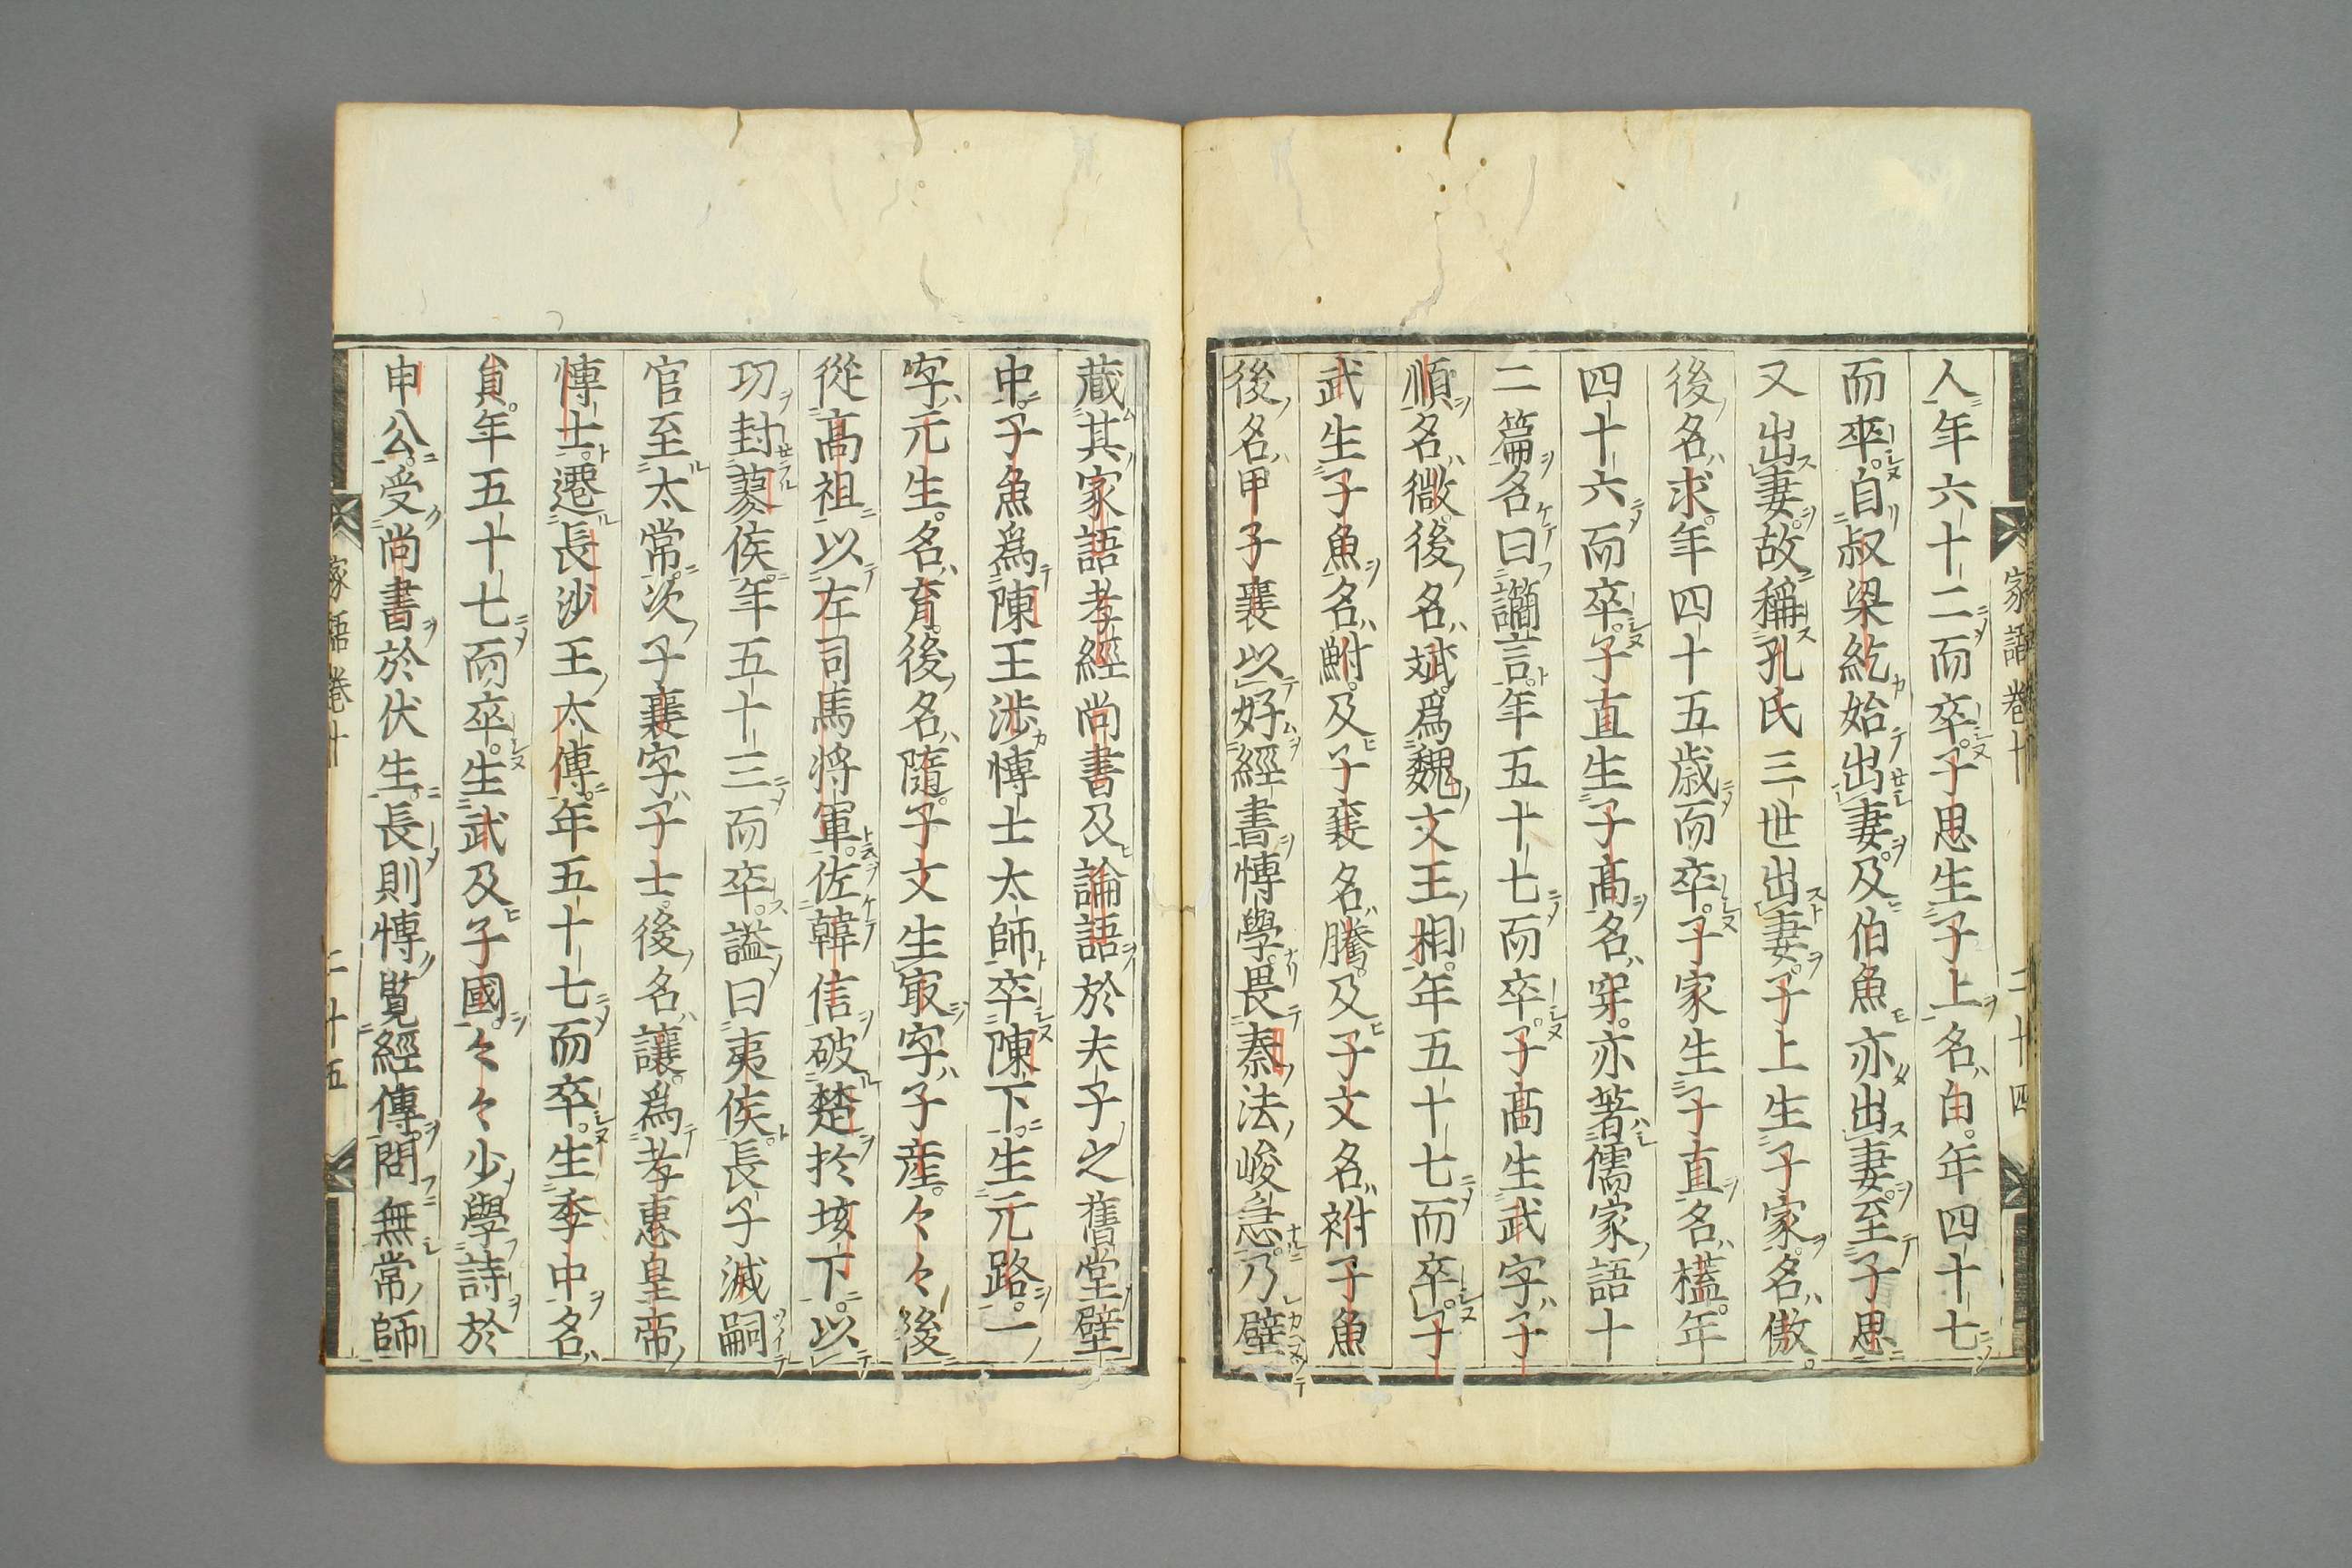 家語卷十 二十四
人年六十二而卒子思生子上名白年四十七
而卒自叔梁紇始出妻及伯魚亦出妻至子思
又出妻故稱孔氏三世出妻子上生子家名傲
後名求年四十五歲而卒子家生子直名㯼年
四十六而卒子直生子高名穿亦著儒家語十
二篇名曰讕言年五十七而卒子高生武字子
順名微後名斌爲魏文王相年五十七而卒子
武生子魚名鮒及子襄名騰及子文名祔子魚
後名甲子襄以好經書博學畏秦法峻急乃壁
藏其家語孝經尚書及論語於夫子之舊堂壁
中子魚爲陳王涉博士太師卒陳下生元路一
字元生名育後名隨子文生㝡字子産々々後
從高祖以左司馬將軍佐韓信破楚於垓下以
功封蓼侯年五十三而卒謚曰夷侯長子滅嗣
官至太常次子襄字子士後名讓爲孝惠皇帝
博士遷長沙王太傅年五十七而卒生季中名
員年五十七而卒生武及子國々々少學詩於
申公受尚書於伏生長則博覽經傳問無常師
家語卷十 二十五